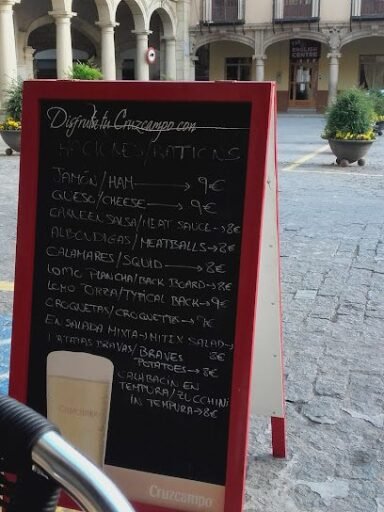 ENGLISH
CENTRE
Disfruta tu Cruzcampo con
RACIONES/RATIONS
JAMÓN/HAM → 9€
QUESO/CHEESE → 9€
CARNE EN SALSA/MEAT SAUCE → 8€
ALBONDIGAS/MEATBALLS → 8€
CALAMARES/SQUID → 8€
LOMO PLANCHA/BACK BOARD → 8€
LOMO ORZA/TYPICAL BACK → 9€
CROQUETAS/CROQUETTE → 7€
ENSALADA MIXTA → MITEX SALAD →
PATATAS BRAVAS/BRAVES 8€
POTATOES → 8€
CALABACIN EN
TEMPURA/ZUCCHINI
IN TEMPURA → 8€
Cruzcampo